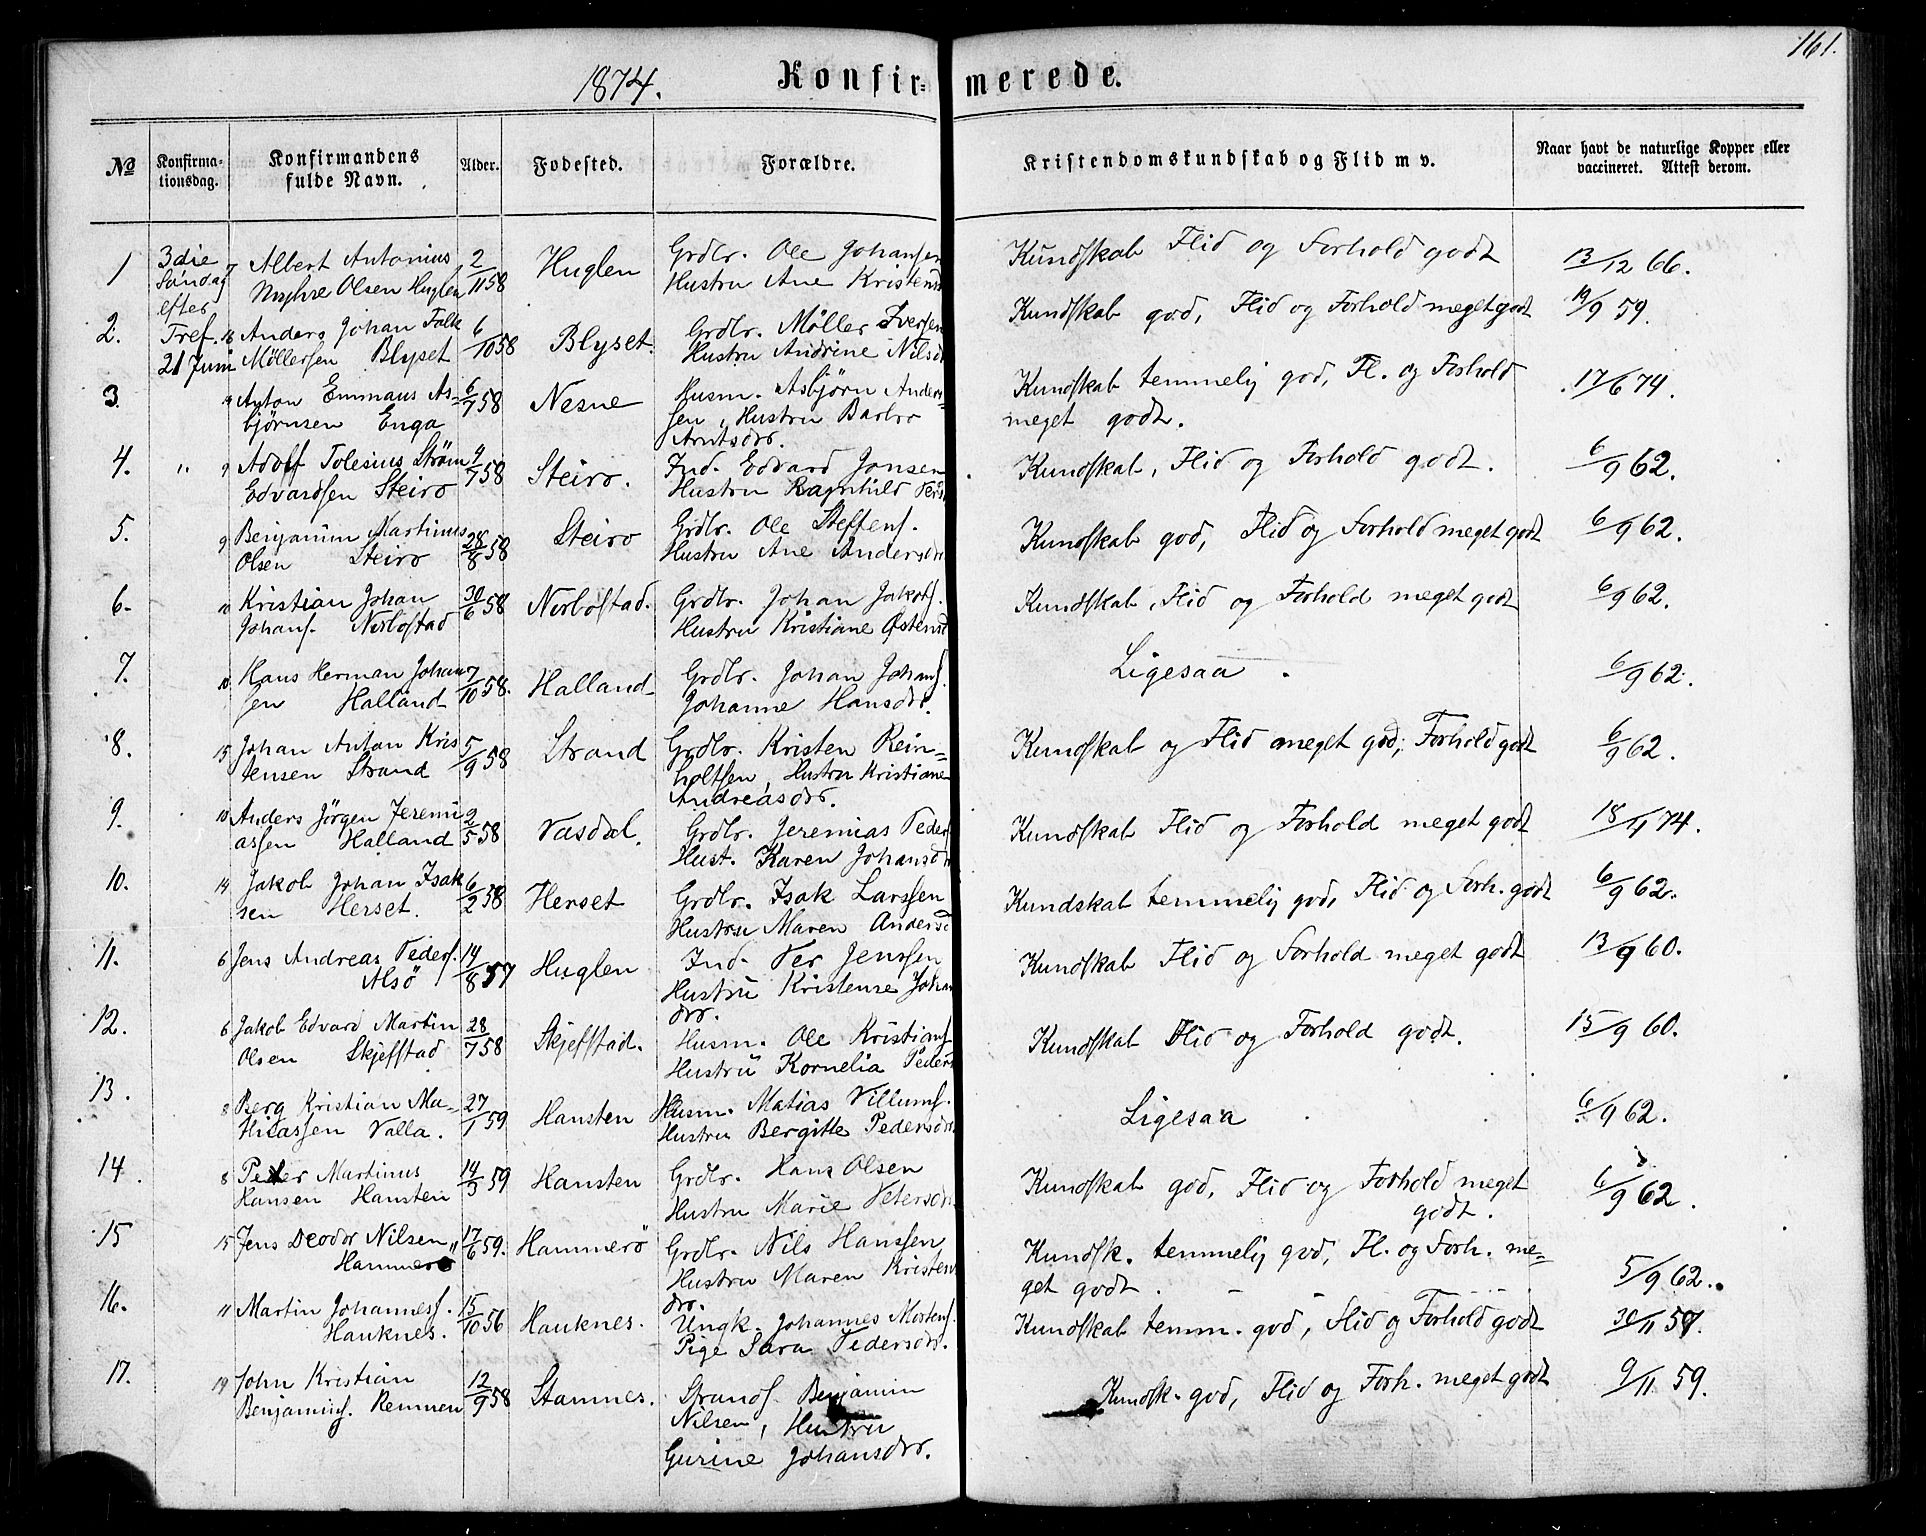 161.
1874. Konfir- merede.
№ Konfirma- tionsdag. Konfirmandens fulde Navn. Alder. Fødested. Forældre. Kristendomskundskab og Flid m v. Naar havt de naturlige Kopper eller vaccineret. Attest derom.
1 3die Albert Antonius 2/11 58 Huglen Grdlr. Ole Johansen Kundskab Flid og Forhold godt 13/12 66.
Søndag 7 Olsen Huglen Hustru Ane Kristensd
efter
2. Tref. 16 Anders Johan Falk 6/10 58 Blyset. Grdlr. Møller Iversen Kundskab god, Flid og Forhold meget godt 19/9 59.
21 Juni Møllersen Blyset Hustru Andrine Nilsd
3. 9 Anton Emmaus As- 6/7 58 Nesne Husm. Asbjørn Anders- Kundskab temmelig god, Fl. og Forhold 17/6 74.
bjørnsen Enga sen, Hustru Barbro meget godt.
Arntsdr.
4. " 9 Adolf Tolesius Strøm 4/7 58 Steiro. Ind. Edvard Jonsen Kundskab, Flid og Forhold godt. 6/9 62.
Edvardsen Steiro Hustru Ragnhild Peds
5. 9 Benjamin Martinus 28/8 58 Steiro Grdlr. Ole Steffens. Kundskab god, Flid og Forhold meget godt 6/9 62.
Olsen Steiro Hustru Ane Andersdr
6. 10 Kristian Johan 30/6 58 Nerbostad. Grdlr. Johan Jakobs. Kundskab, Flid og Forhold meget godt 6/9 62.
Johans. Nerbostad Hustru Kristiane Østensd
7. 10 Hans Herman Johan 7/10 58. Halland Grdlr. Johan Johans. Ligesaa. 6/9 62.
sen Halland Johanne Hansdr.
8. 15 Johan Anton Kris 5/9 58 Strand Grdlr. Kristen Rein- Kundskab og Flid meget god, Forhold godt 6/9 62.
tensen Strand holtsen, Hustru Kristiane
Andreasdr.
9. 10 Anders Jörgen Jeremi 2/5 58 Vasdal. Grdlr. Jeremias Peders Kundskab Flid og Forhold meget godt 18/4 74.
assen Halland Hust. Karen Johansdr
10. 14 Jakob Johan Isak 6/2 58 Herset Grdlr. Isak Larssen Kundskab temmelig god, Flid og Forh. godt 6/9 62.
sen Herset. Hustru Maren Andersd
11. 6 Jens Andreas Peders. 14/8 57 Huglen Ind. Per Jenssen Kundskab Flid og Forhold meget godt 13/9 60.
Alsö Hustru Kristense Johan
dr.
12. 6 Jakob Edvard Martin 28/7 58 Skjefstad. Husm. Ole Kristians. Kundskab Flid og Forhold godt. 15/9 60.
Olsen Skjefstad Hustru Kornelia Peders
13. 8 Berg Kristian Ma- 27/1 59 Hansten Husm. Matias Villums. Ligesaa 6/9 62.
thiassen Valla. Hustru Bergitte Pedersdr.
14. 8 Peter Martinus 14/3 59 Hansten Grdlr. Hans Olsen Kundskab god, Flid og Forhold meget 6/9 62.
Hansen Hansten Hustru Marie Petersdr. godt.
15 15 Jens Deodor Nilsen 17/6 59. Hammerö Grdlr. Nils Hanssen Kundsk. temmelig god, Fl. og Forh. me-
Hammerö Hustru Maren Kristens get godt. 5/9 62.
dr.
16. 11 Martin Johanness. 15/10 56 Hauknes. Ungk. Johannes Mortens. Kundskab temm. god, Flid og Forhold godt 30/11 57.
Hauknes. Pige Sara Pedersdr.
17. 19 John Kristian 12/9 58 Stamnes. Strands. Benjamin Kundsk. god, Flid og Forh. meget godt 9/11 59.
Benjamins. Remmen Nilsen, Hustru
Gurine Johansdr.